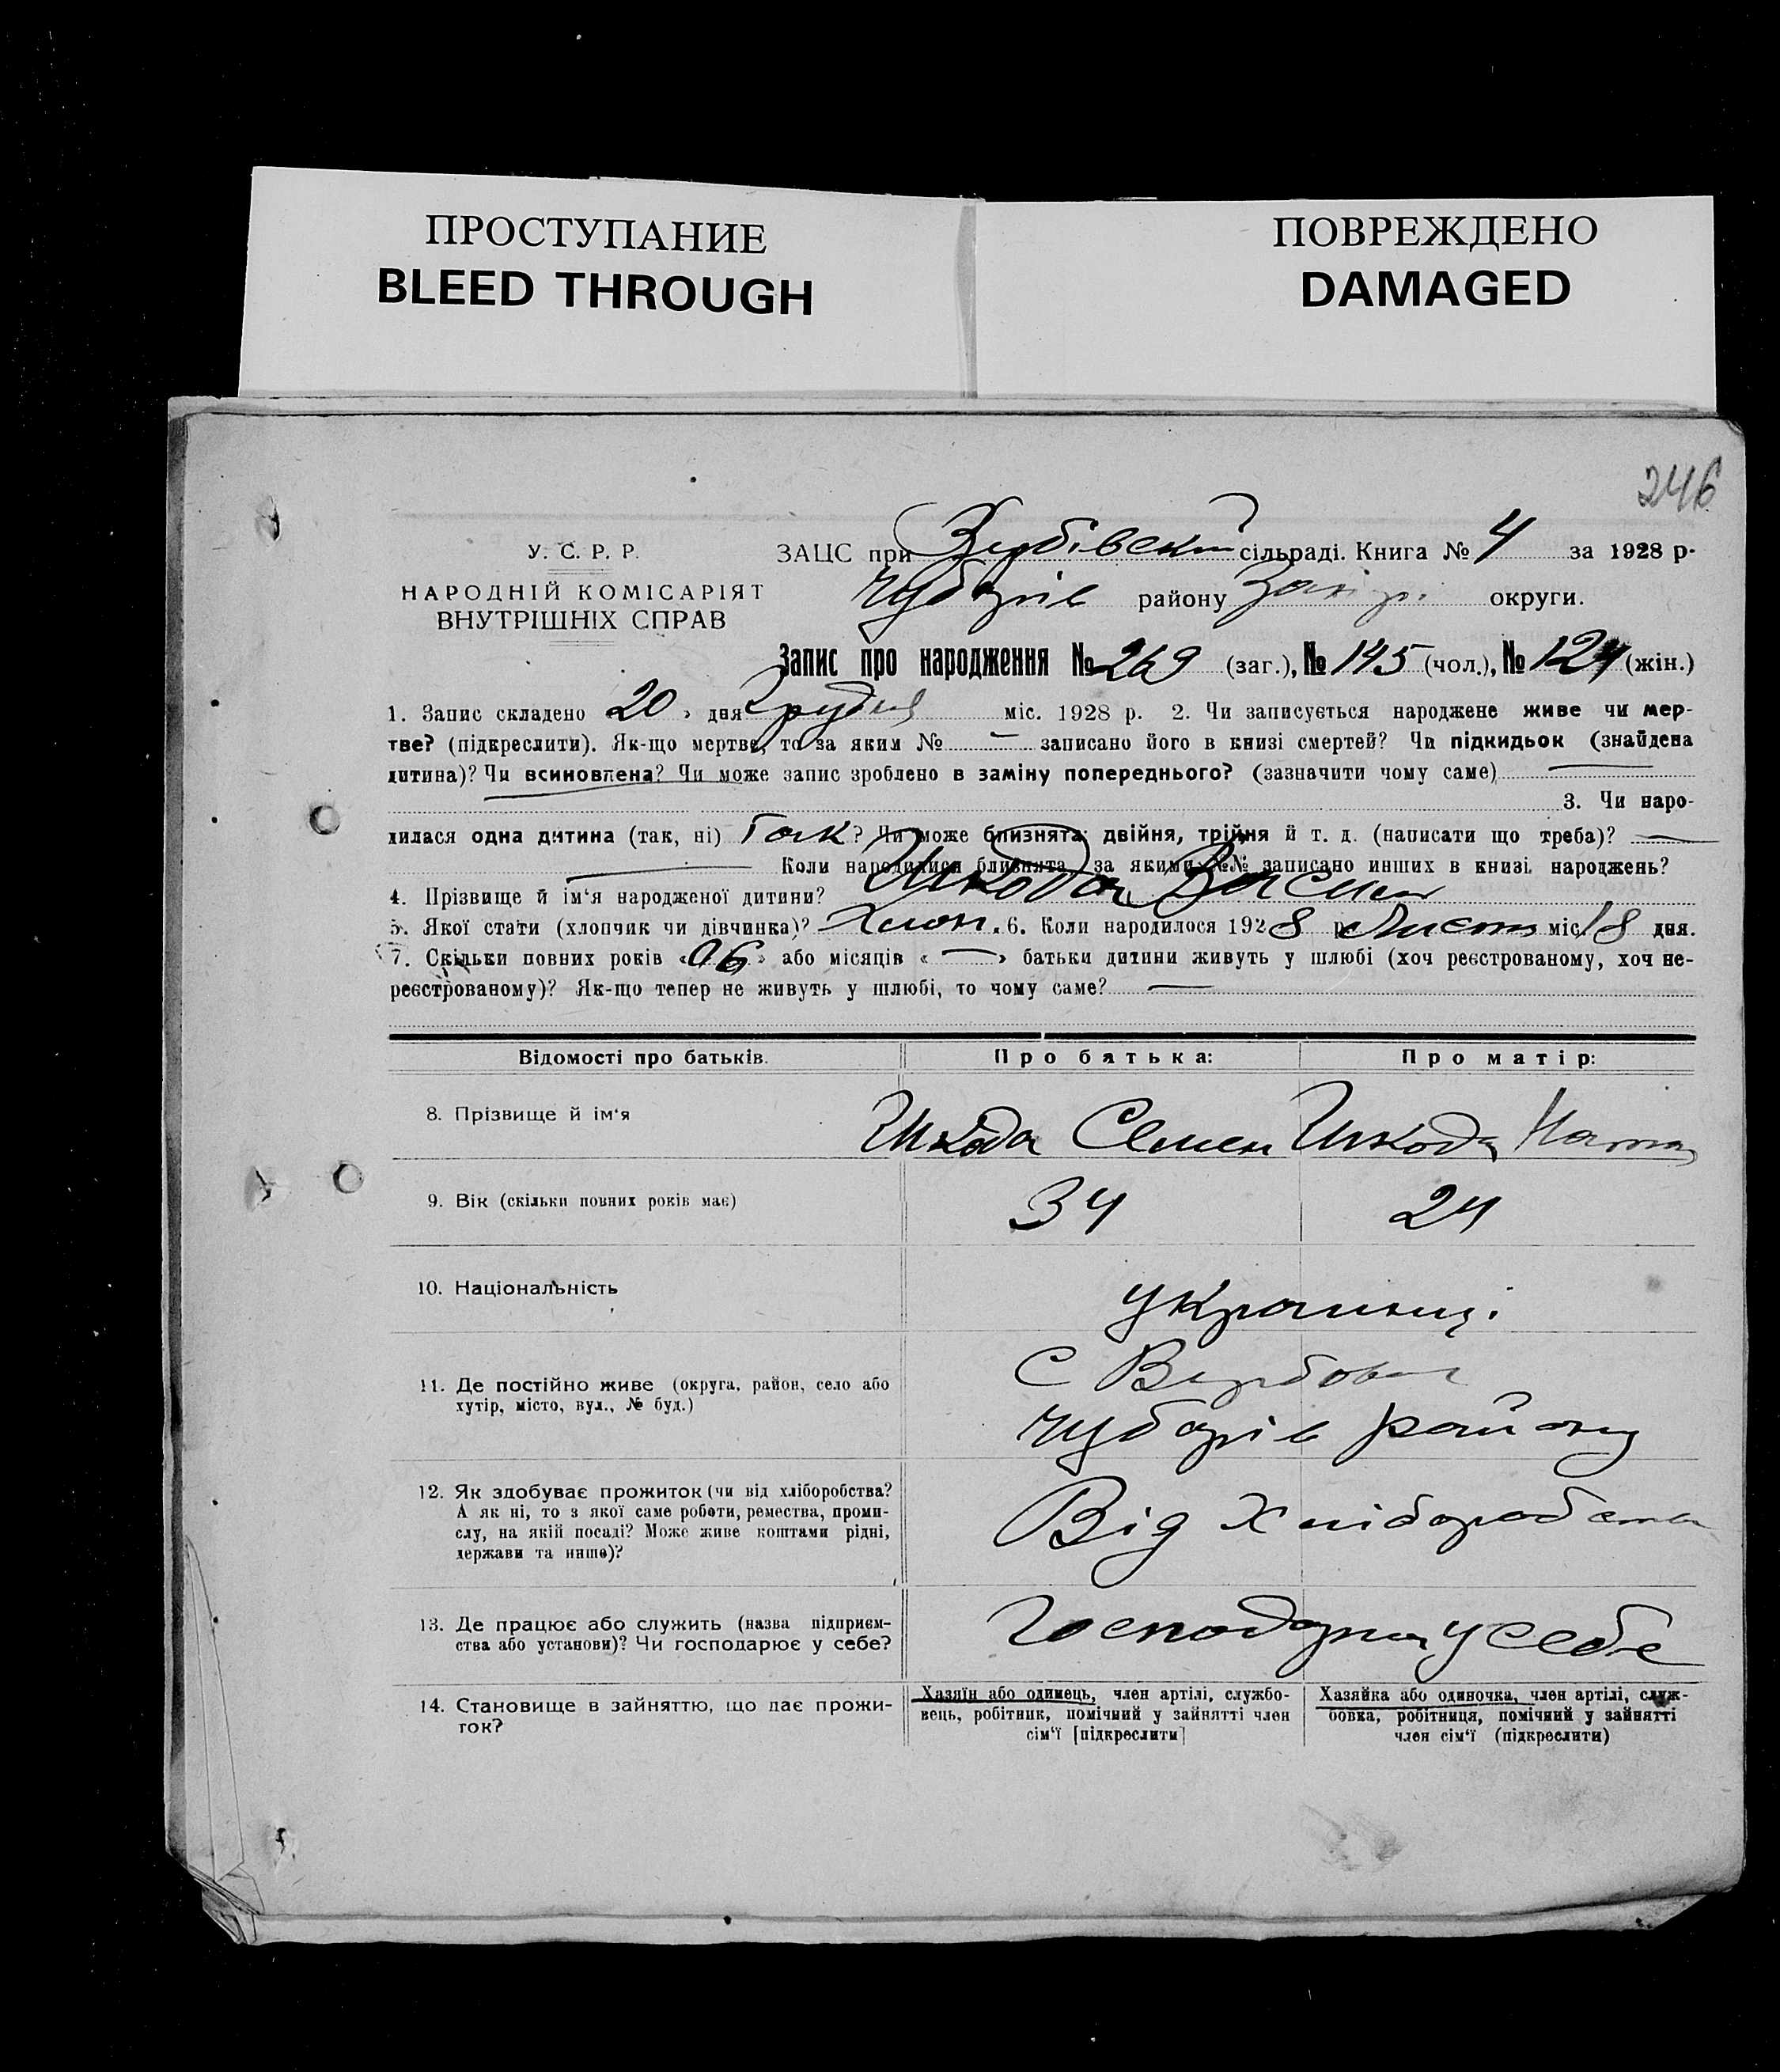 ПРОСТУПАНИЕ
BLEED THROUGH
ПОВРЕЖДЕНО
DAMAGED
246
У. С. Р. Р.
НАРОДНІЙ КОМІСАРІЯТ
ВНУТРІШНІХ СПРАВ
ЗАЦС при Вербівській сільраді. Книга № 4 за 1928 р.
Чубарів району Запір. округи.
Запис про народження № 269 (заг.), № 145 (чол.), № 124 (жін.)
1. Запис складено 20 дня Грудня міс. 1928 р. 2. Чи записується народжене живе чи мер-
тве? (підкреслити). Як-що мертве, то за яким № — записано його в книзі смертей? Чи підкидьок (знайдена
дитина)? Чи всиновлена? Чи може запис зроблено в заміну попереднього? (зазначити чому саме) —
3. Чи наро-
дилася одна дитина (так, ні) Так? Чи може близнята: двійня, трійня й т. д. (написати що треба)? —
— Коли народилися близнята, за якими №№ записано инших в книзі народжень?
4. Прізвище й ім'я народженої дитини? Шкода
5. Якої стати (хлопчик чи дівчинка)? Хлоп. 6. Коли народилося 1928 р. Лист міс. 18 дня.
7. Скільки повних років «06» або місяців « — » батьки дитини живуть у шлюбі (хоч реєстрованому, хоч не-
реєстрованому)? Як-що тепер не живуть у шлюбі, то чому саме? —
Відомості про батьків. Про батька: Про матір:
8. Прізвище й ім'я Шкода Семен Шкода
9. Вік (скільки повних років має) 34 24
10. Національність українці
11. Де постійно живе (округа, район, село або
хутір, місто, вул., № буд.)
С Вербове
Чубарів району
12. Як здобуває прожиток (чи від хліборобства?
А як ні, то з якої саме роботи, ремества, проми-
слу, на якій посаді? Може живе коштами рідні,
держави та инше)?
Від Хліборобства
13. Де працює або служить (назва підприєм-
ства або установи)? Чи господарює у себе?
Господарює у себе
14. Становище в зайняттю, що дає прожи-
ток?
Хазяїн або одинець, член артілі, службо-
вець, робітник, помічний у зайнятті член
сім'ї [підкреслити]
Хазяйка або одиночка, член артілі, служ-
бовка, робітниця, помічний у зайнятті
член сім'ї (підкреслити)